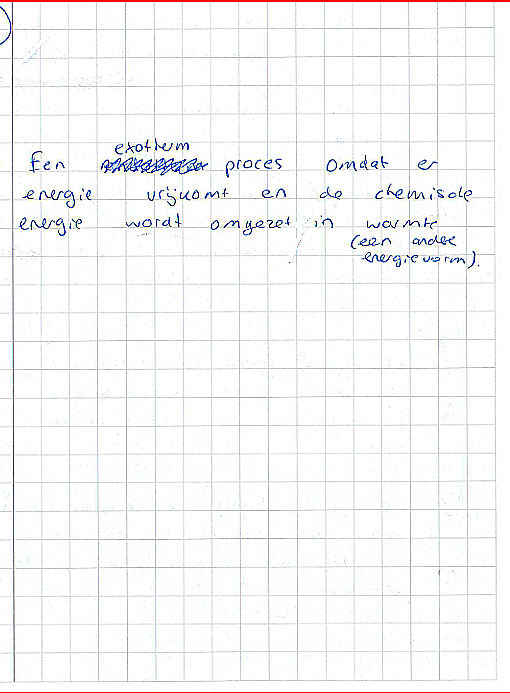 exotherm
Een proces omdat er
energie vrijkomt en de chemische
energie wordt omgezet in warmte
(een andere
energievorm).